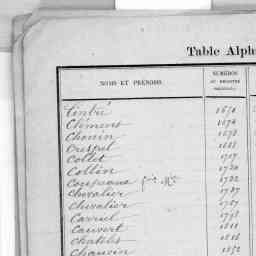 Table Alph
NOMS ET PRÉNOMS.
NUMÉROS
DU REGISTRE
Cintré 1674
Clément 1674
Chonin 1678
Crespel 1688
Collet 1717
Collin 1720
Chevalier 1747
Chevalier 1757
Carriel 1798
Cauvert 1811
Chasles 1818
Chauvin 1852